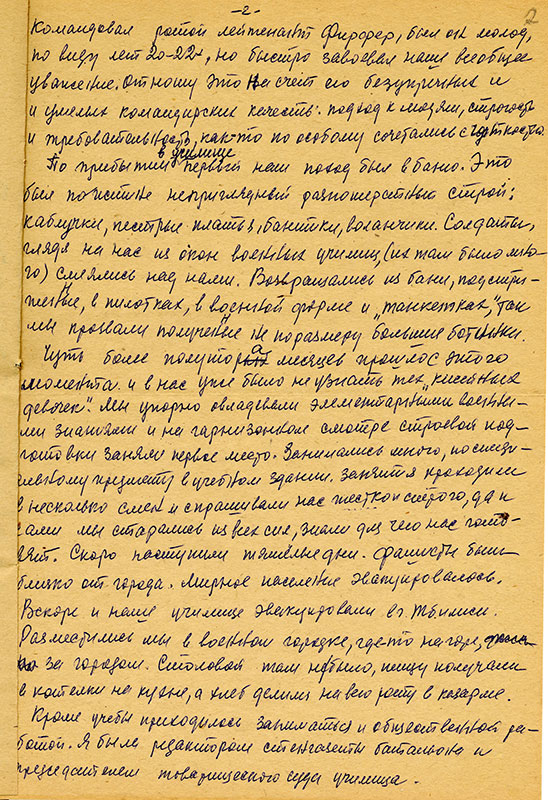 -2-
2
командовал ротой лейтенант Фирфер, был он молод,
по виду лет 20-22х, но быстро завоевал наше всеобщее
уважение. Отношу это на счёт его безупречных и
и умелых командирских качеств: подход к людям, строгость
и требовательность, как-то по особому сочетались с чуткостью.
По прибытии в училище первый наш поход был в баню. Это
был поистине неприглядный разношерстный строй:
каблучки, пестрые платья, бантики, воланчики. Солдаты,
глядя на нас из окон военных училищ, (их там было мно-
го) смеялись над нами. Возвращались из бани, подстри-
женные, в пилотках, в военной форме и „танкетках", так
мы прозвали полученые не по размеру большие ботинки.
Чуть более полутора месяцев прошло с этого
момента и в нас уже было не узнать тех „кисейных
девочек". Мы упорно овладевали элементарными военны-
ми знаниями и на гарнизонном смотре строевой под-
готовки заняли первое место. Занимались много, по специ-
альному предмету в учебном здании. Занятия проходили
в несколько смен и спрашивали нас жестко и строго, да и
сами мы старались изо всех сил, знали для чего нас гото-
вят. Скоро наступили тяжелые дни. Фашисты были
близко от города. Мирное население эвакуировалось.
Вскоре и наше училище эвакуировали в г. Тбилиси.
Разместились мы в военном городке, где-то на горе,
за городом. Столовой там не было, пищу получали
в котелки на кухне, а хлеб делили на всю роту в казарме.
Кроме учебы приходилось заниматься и общественной ра-
ботой. Я была редактором стенгазеты батальона и
председателем товарищеского суда училища.